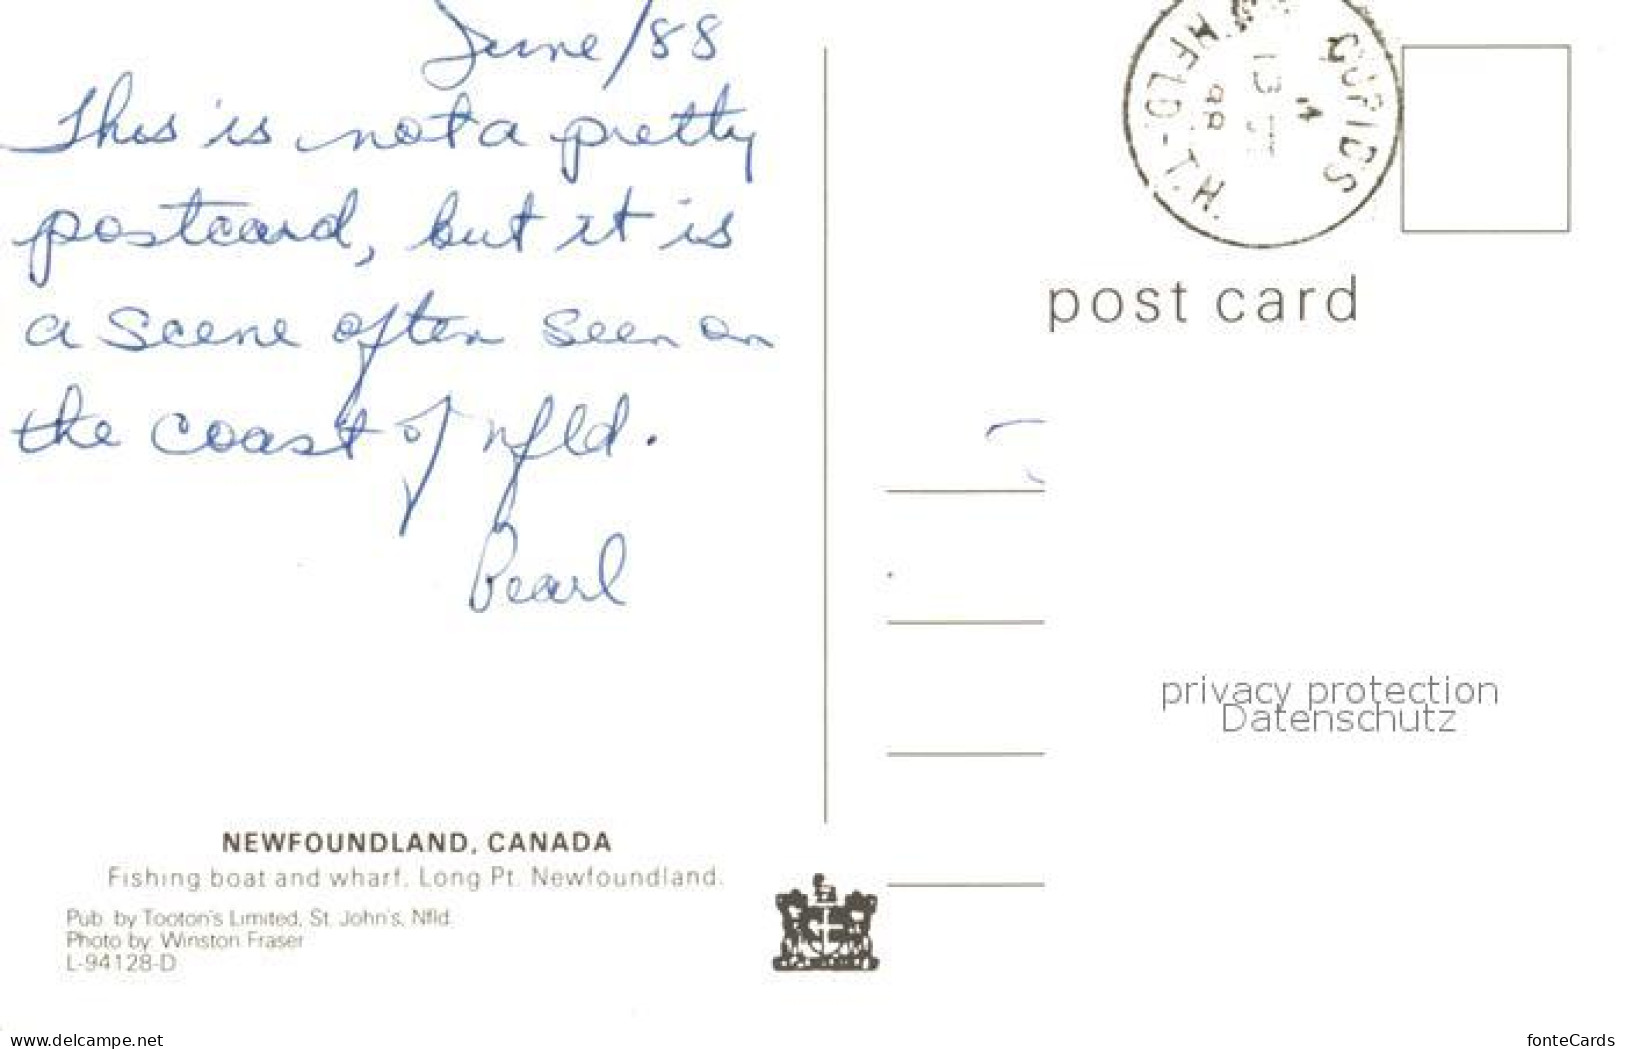 June/88
This is not a pretty
postcard, but it is
a scene often seen on
the coast of nfld.
Pearl
NEWFOUNDLAND, CANADA
Fishing boat and wharf, Long Pt. Newfoundland.
Pub. by Tooton's Limited, St. John's, Nfld.
Photo by Winston Fraser
L-94128-D
CUPIDS
NFLD-T.N.
M
13
88
post card
privacy protection
Datenschutz
www.delcampe.net
fonteCards